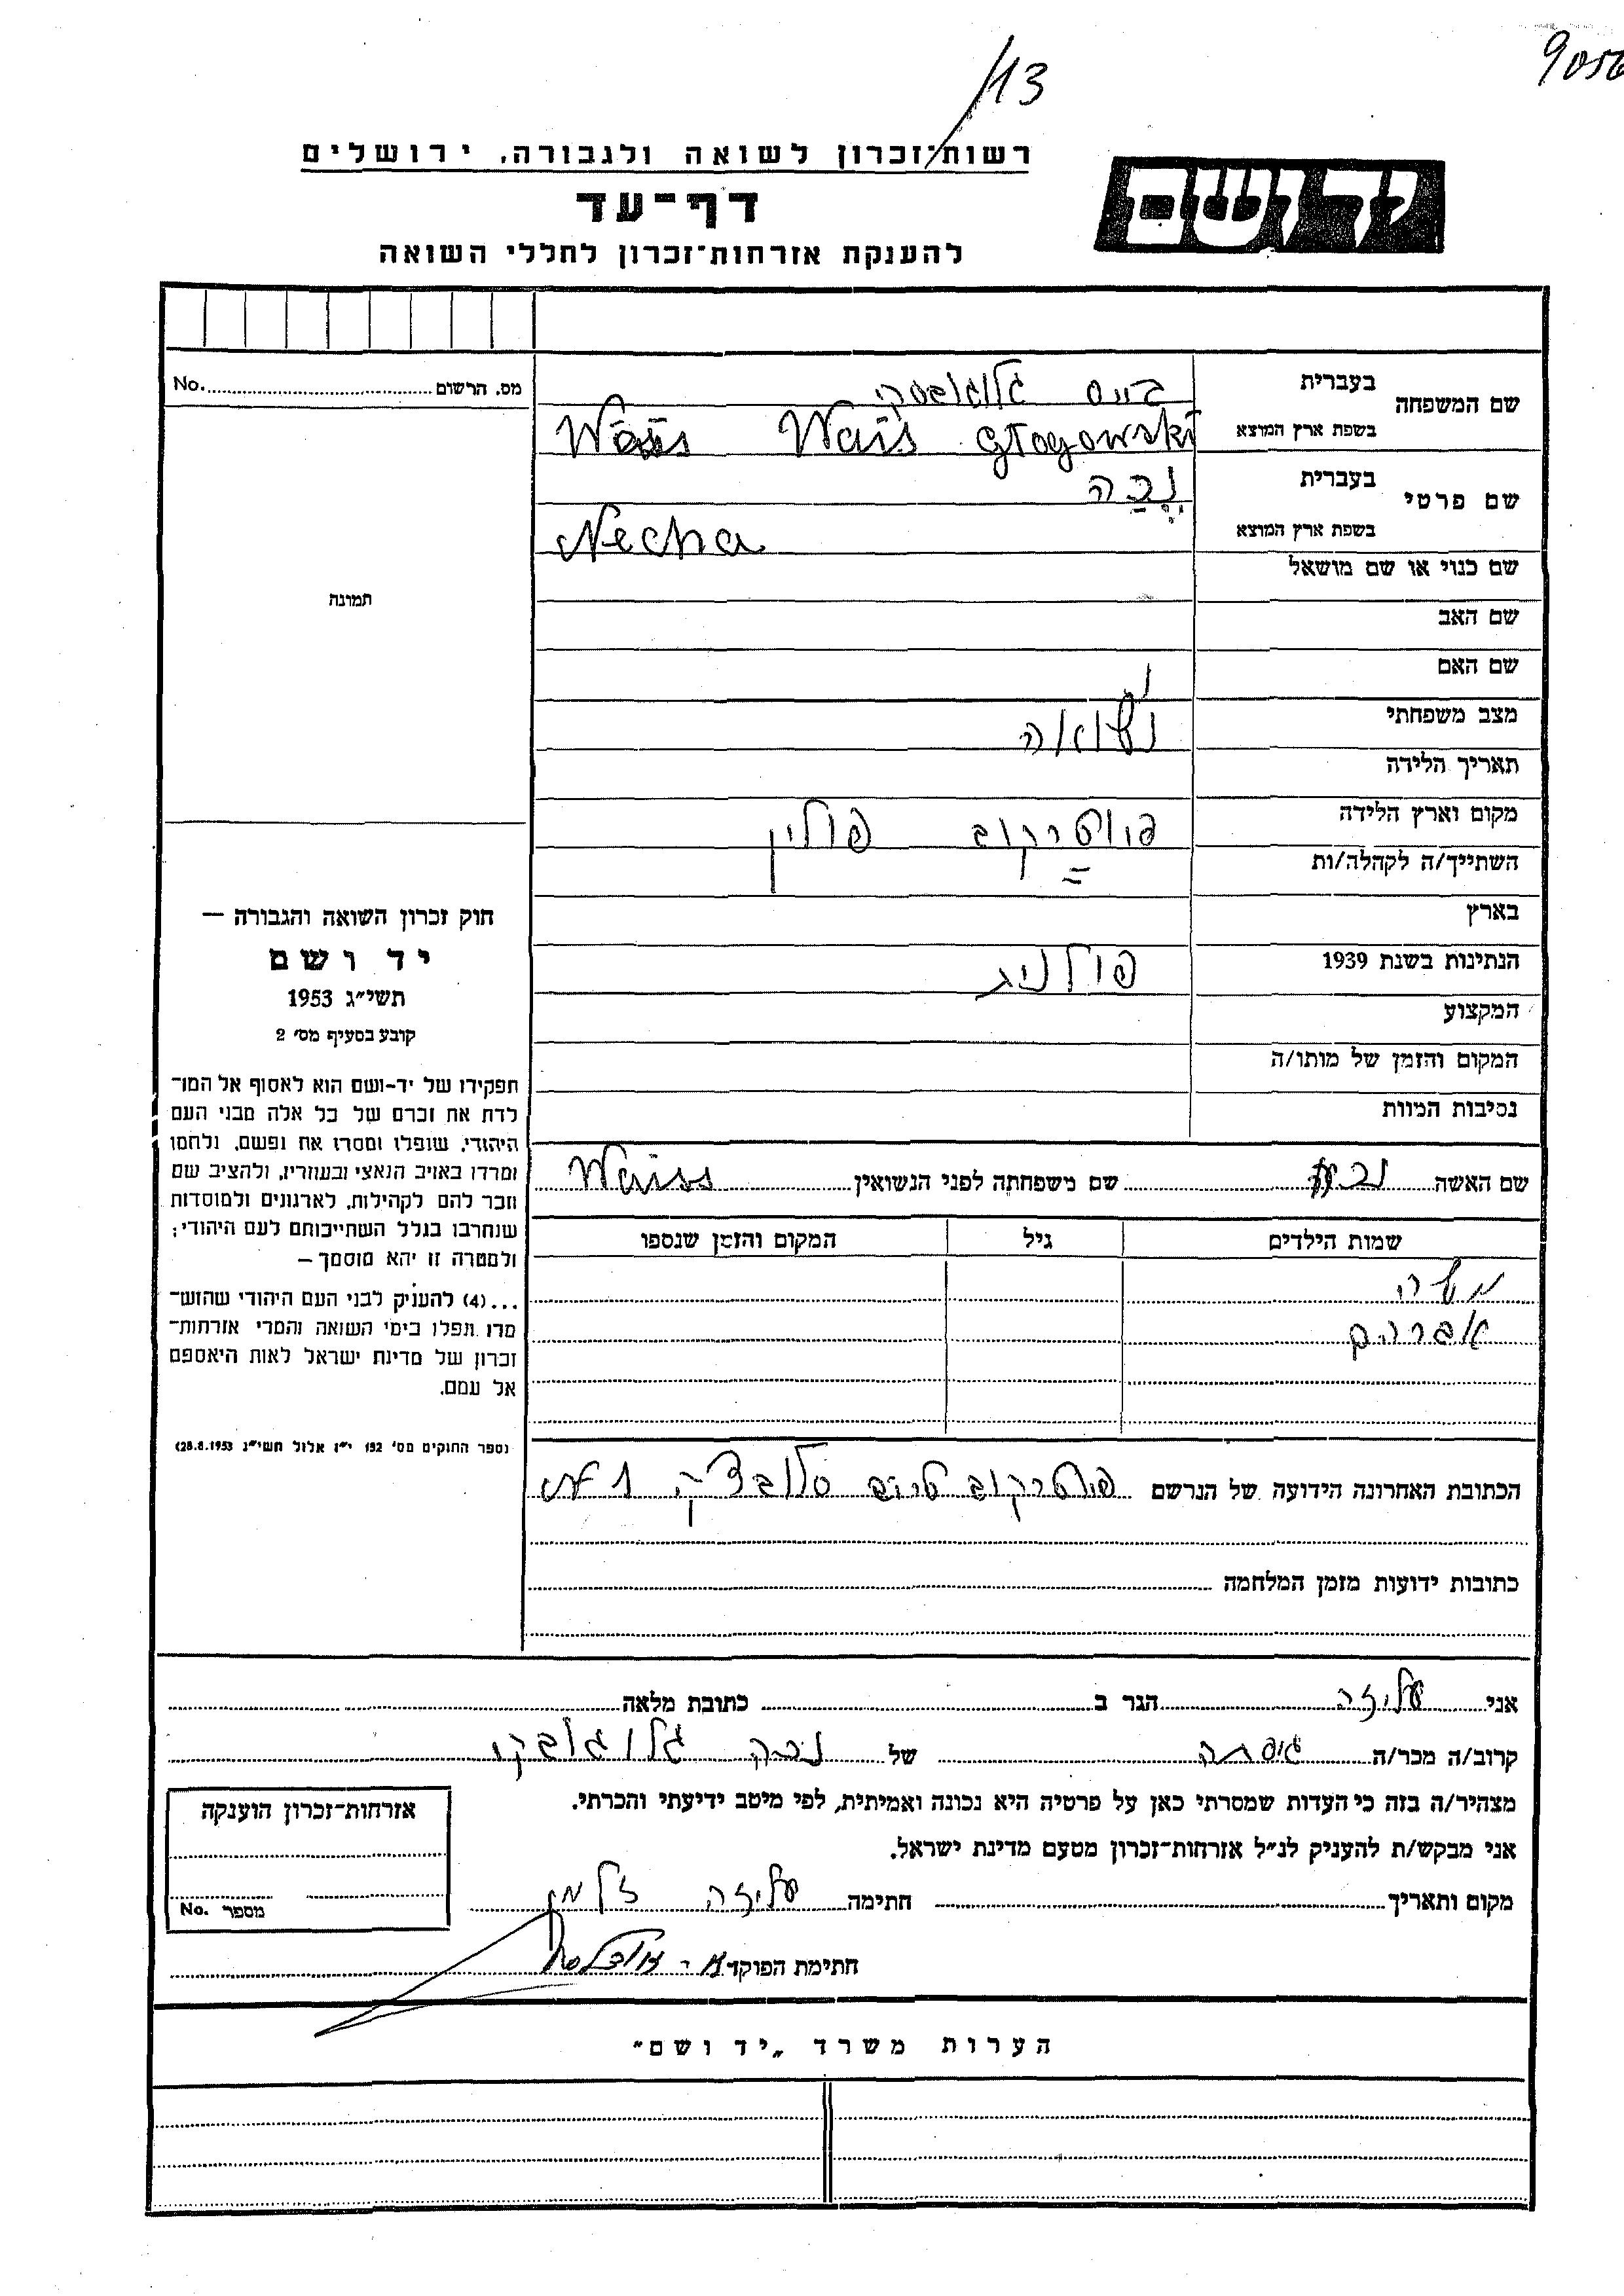 9056
/13
רשות־זכרון לשואה ולגבורה, ירושלים
יד ושם
דף־עד
להענקת אזרחות־זכרון לחללי השואה
שם המשפחה
בעברית
בשפת ארץ המוצא
Wais Glogowski
שם פרטי
בעברית נֶכַה
בשפת ארץ המוצא Necha
שם כנוי או שם מושאל
שם האב
שם האם
מצב משפחתי נשואה
תאריך הלידה
מקום וארץ הלידה פיוטרקוב פולין
השתייך/ה לקהלה/ות =
בארץ
הנתינות בשנת 1939 פולניג
המקצוע
המקום והזמן של מותו/ה
נסיבות המוות
מס. הרשום No.
תמונה
חוק זכרון השואה והגבורה —
יד ושם
תשי״ג 1953
קובע בסעיף מס׳ 2
תפקידו של יד-ושם הוא לאסוף אל המו־
לדת את זכרם של כל אלה מבני העם
היהודי, שנפלו ומסרו את נפשם, נלחמו
ומרדו באויב הנאצי ובעוזריו, ולהציב שם
וזכר להם לקהילות, לארגונים ולמוסדות
שנחרבו בגלל השתייכותם לעם היהודי;
ולמטרה זו יהא מוסמך —
...(4) להעניק לבני העם היהודי שהוש־
מדו ונפלו בימי השואה והמרי אזרחות־
זכרון של מדינת ישראל לאות היאספם
אל עמם.
(ספר החוקים מס׳ 132 י״ז אלול תשי״ג 28.8.1953)
שם האשה שם משפחתה לפני הנשואין Waiss
שמות הילדים גיל המקום והזמן שנספו
משה
אברהם
הכתובת האחרונה הידועה של הנרשם פיוטרקוב
כתובות ידועות מזמן המלחמה
אני עליזה הגר ב כתובת מלאה
קרוב/ה מכר/ה גיסתה של נכה
מצהיר/ה בזה כי העדות שמסרתי כאן על פרטיה היא נכונה ואמיתית, לפי מיטב ידיעתי והכרתי.
אני מבקש/ת להעניק לנ״ל אזרחות־זכרון מטעם מדינת ישראל.
מקום ותאריך חתימה עליזה זלמן
חתימת הפוקד
אזרחות־זכרון הוענקה
מספר No.
הערות משרד „יד ושם״